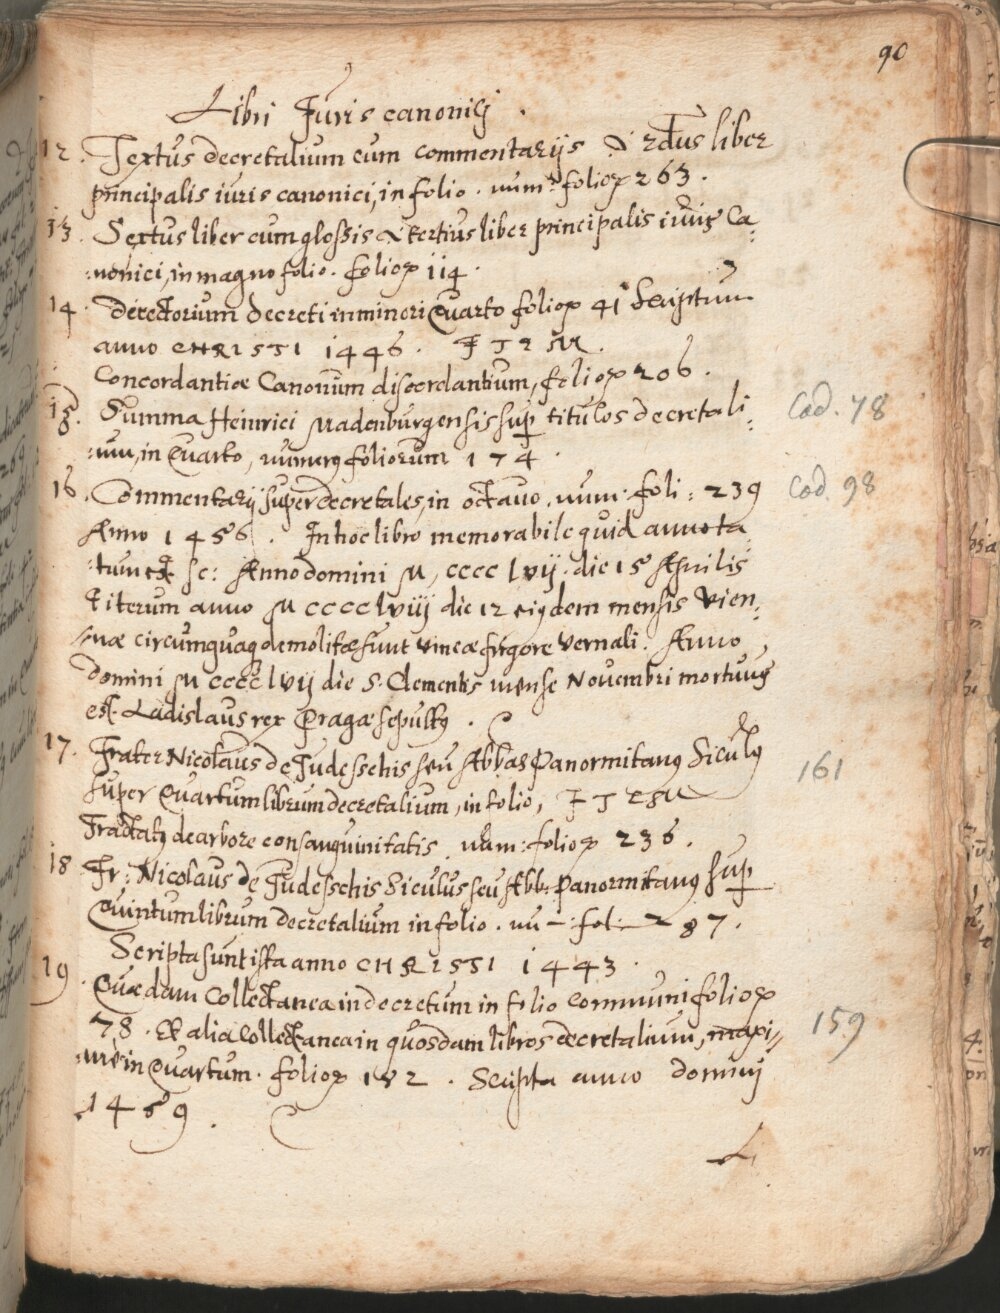 90
Libri Juris canonicj.
12. Textus decretalium cum commentarijs &
principalis iuris canonici, in folio. num: folioꝝ 263.
13. Sextus liber cum glossis & tertius liber principalis iuris Ca:
:nonici, in magno folio. folioꝝ 114.
14. Directorium decreti in minori Quarto folioꝝ 41 Scriptum
anno CHRISTI 1446.
Concordantiæ Canonum discordantium, folioꝝ 206.
15. Summa Heinrici Madenburgensis sup titulos decretali: Cod. 78
:um, in Quarto, numerus foliorum 174.
16. Commentarij super decretales, in octavo. num: foli: 239 Cod. 98
Anno 1456. In hoc libro memorabile quid annota
:tum est sc: Anno domini M, cccc lvij. die 15 Aprilis
& iterum anno M cccc lviij die 12 eiusdem mensis Vien:
:næ circumquaq demolitæ sunt vineæ frigore vernali. Anno
Domini M cccc lvij die S. Clementis mense Novembri mortuus
est Ladislaus rex Pragæ sepultus.
17. Frater Nicolaus de Tudesschis seu Abbas Panormitanus Siculus 161
super Quartum librum decretalium, in folio,
Tractatus de arbore consanguinitatis. num: folioꝝ 236.
18 Fr: Nicolaus de Tudesschis Siculus seu Abb: Panormitanus sup
Quintum librum decretalium in folio. nu-: fol: 287.
Scripta sunt ista anno CHRISTI 1443.
19. Quædam Collectanea in decretum in folio communi folioꝝ
78. Et alia Collectanea in quosdam libros decretalium, maxi// 159
:me in Quartum. folioꝝ 182. Scripta anno dominj
1459.